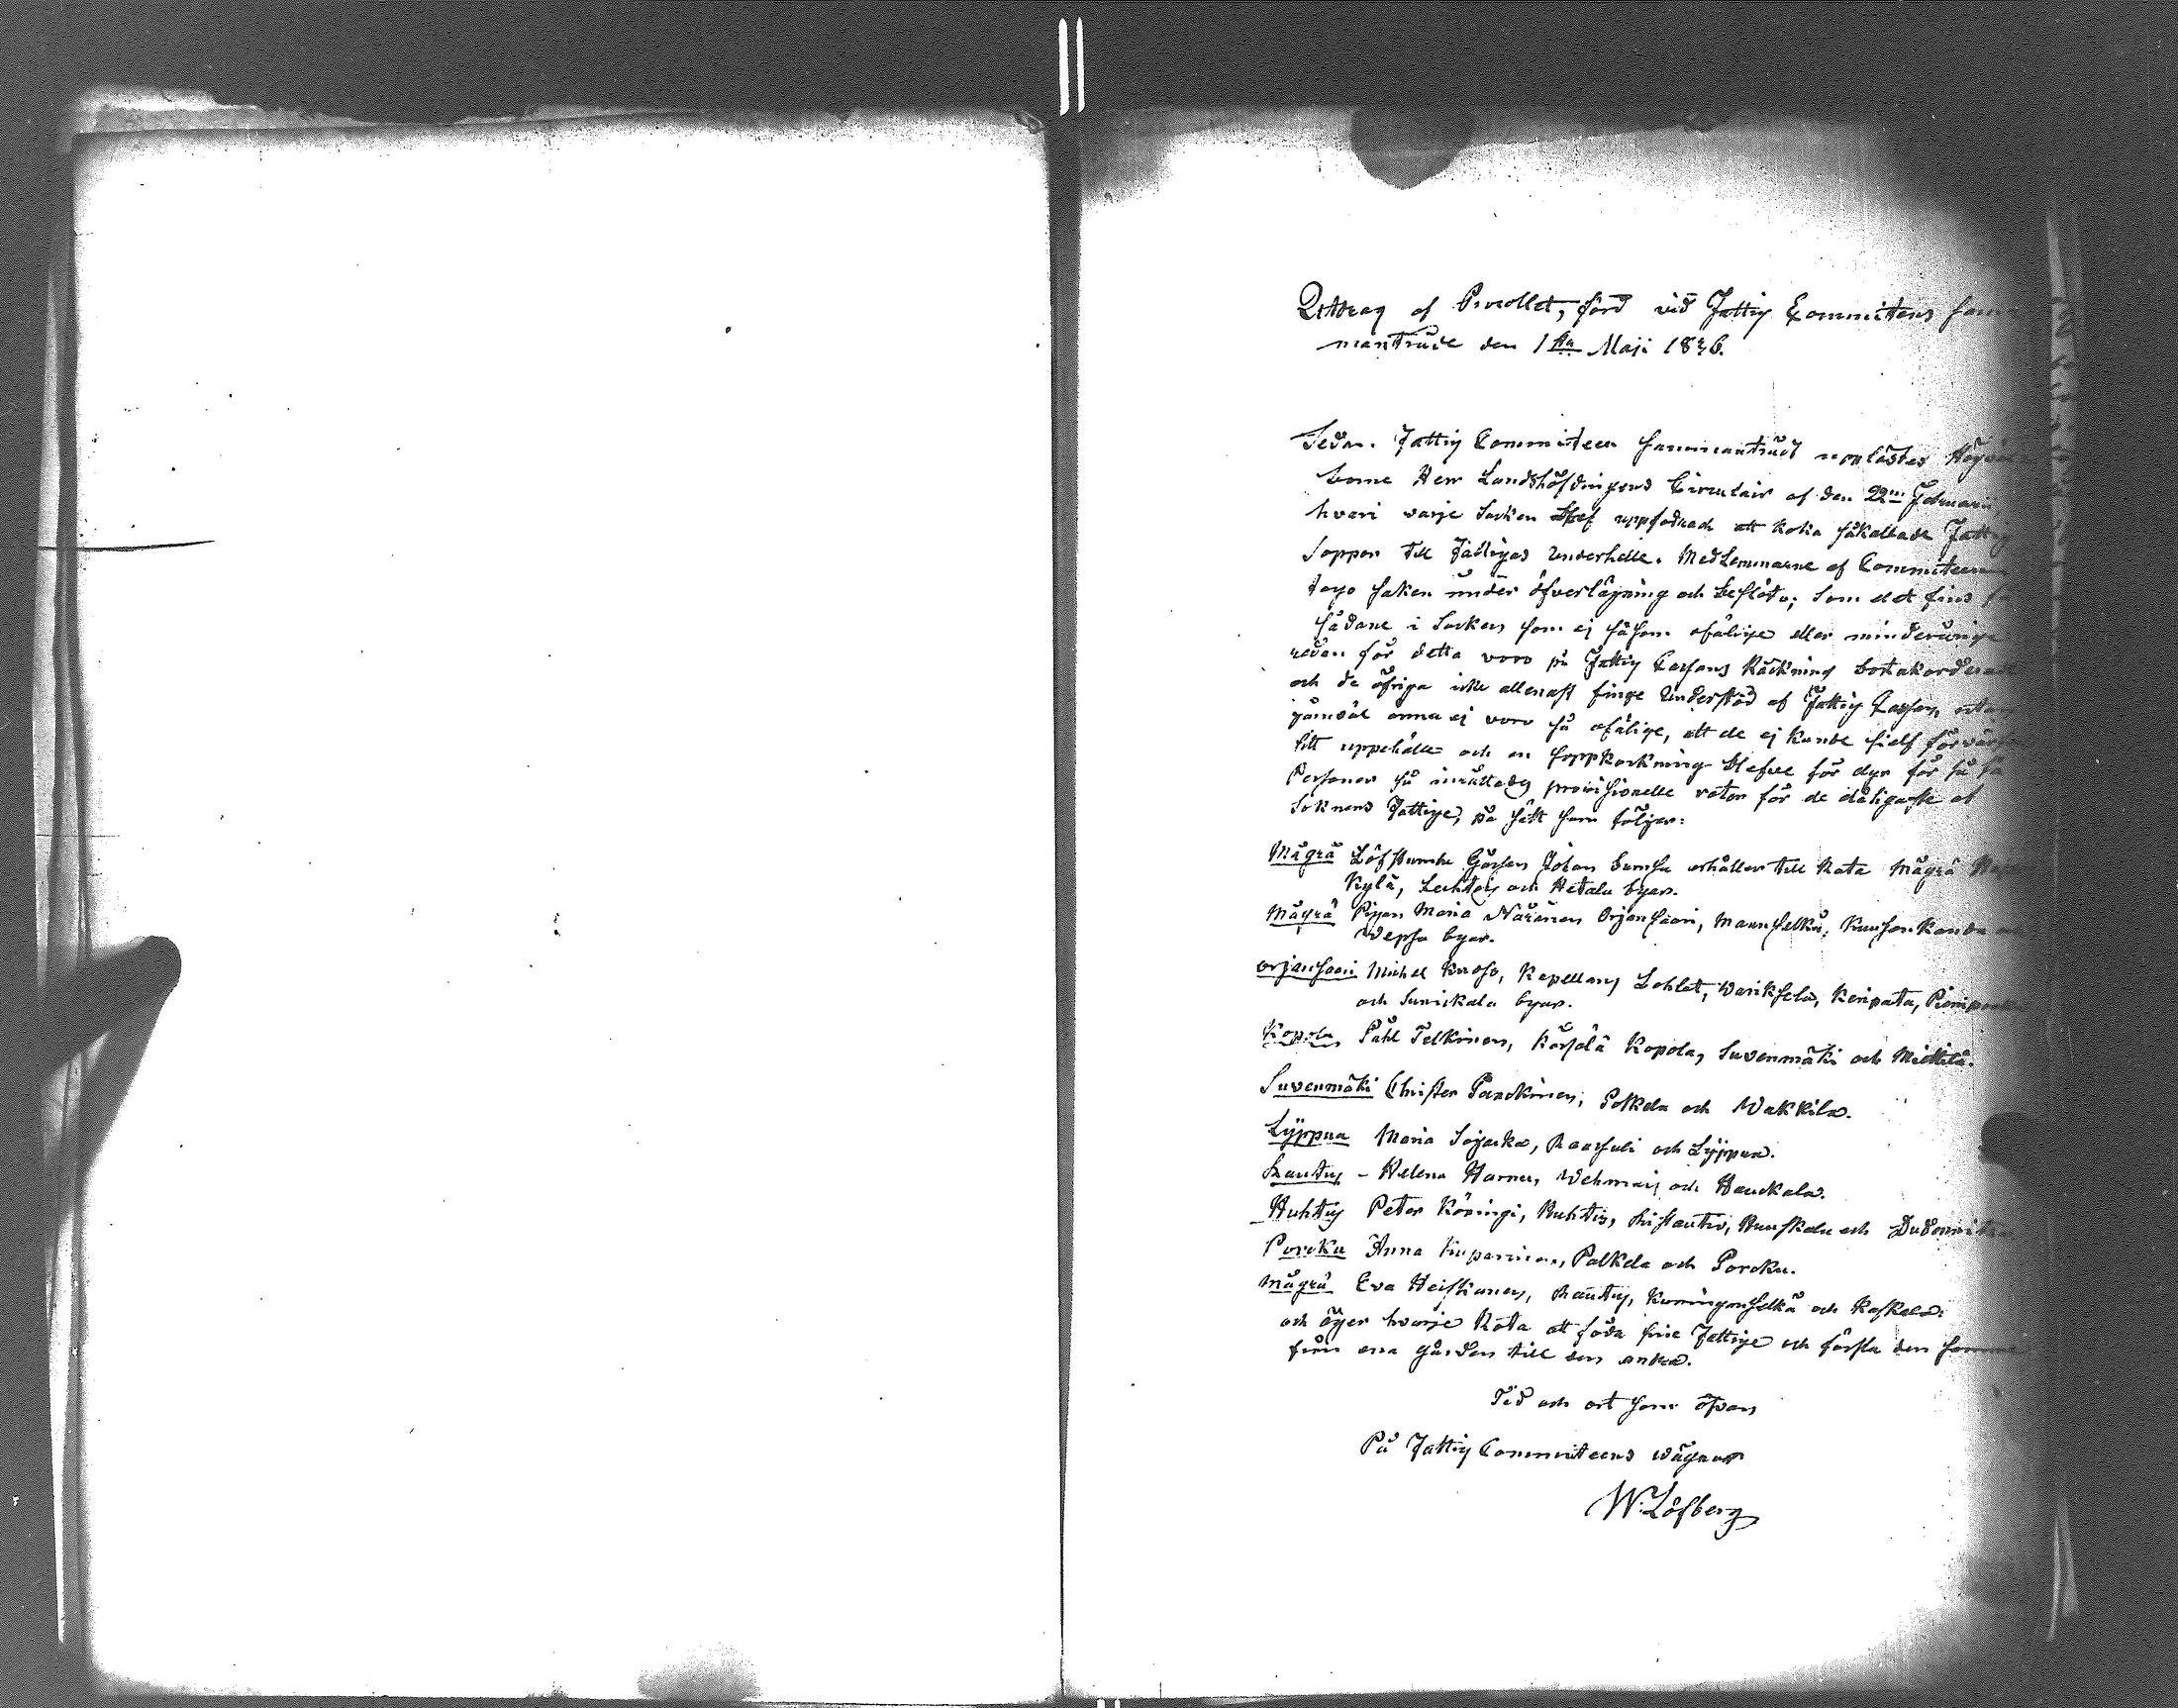 Utdrag af Procollet, förd vid Fattig Committens sam
manträde den 1sta Maji 1836.
Sedan Fattig Committeen sammanträdt upplästes Högväl
borne Herr Landshöfdingens Circulair af den 22ne Februarii
hvari varje Socken blef uppfodrad att koka såkallade Fattig
Soppor till Fattigas Underhelle. Medlemmarne af Committeen
togo saken under öfverlägning och beslöto; Som det fins
sådane i Socken som ej såsom ofälige eller minderårige
redan för detta voro på Fattig Cassans Räckning bortakorderade
och de öfriga icke allenast finge Understöd af Fattig Cassan, utan
jämväl ännu ej voro så ofälige, att de ej kunde sielf förvärfva
sitt uppehälle och en soppkockning blefve för dyr för så få
Personer så inrättades provisionelle rotor för de dåligaste af
Soknens Fattige, på sätt som följer:
Mägrä Löfstumbe Gossen Johan Sumsu erhåller till Rota Mägrä
Kylä, Lechtois och Hetala byar.
Mägrä Pigan Maria Näränen Orjansaari, Mannselkä, Kuusenkanda
Wepsa byar.
Orjansaari Michel Kuoso, Kapellans Lohlat, Wariksela, Keripata,
och Suniskala byar.
Kopola Påhl Telkinen, Korsolä Kopola, Suvenmäki och Miettilä.
Suvenmäki Christer Pardkinen, Potkela och Wakkila.
Lyppua Maria Sojacka, Raasuli och Lyppua.
Rautus - Helena Harnen, Wehmais och Hauckala.
Huhtis Peter Köningi, Huhtis, Ristautio, Ruuskala och
Porcku Anna Kuparinen, Palkela och Porcku.
Mägrä Eva Heiskanen, Rautus, Kuninganselkä och Koskela.
och äger hvarje Rota att föda sine Fattige och forsla den samme
från ena gården till den andra.
Tid och ort som ofvan
På Fattig Committeens wägnar
W: Löfberg